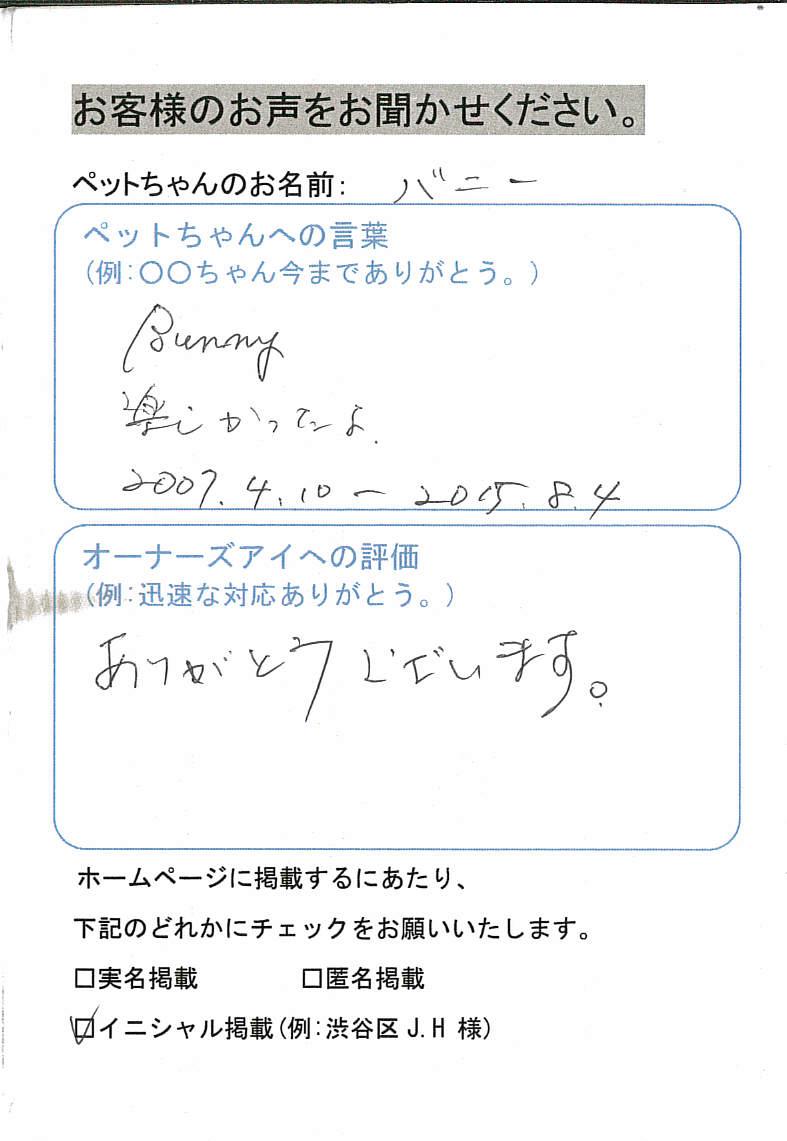 お客様のお声をお聞かせください。
ペットちゃんのお名前: バニー
ペットちゃんへの言葉
(例:〇〇ちゃん今までありがとう。)
Bunny
楽しかったよ.
2007.4.10 ー 2015.8.4
オーナーズアイへの評価
(例:迅速な対応ありがとう。)
ありがとうございます。
ホームページに掲載するにあたり、
下記のどれかにチェックをお願いいたします。
□実名掲載 □匿名掲載
☑イニシャル掲載(例:渋谷区 J.H 様)